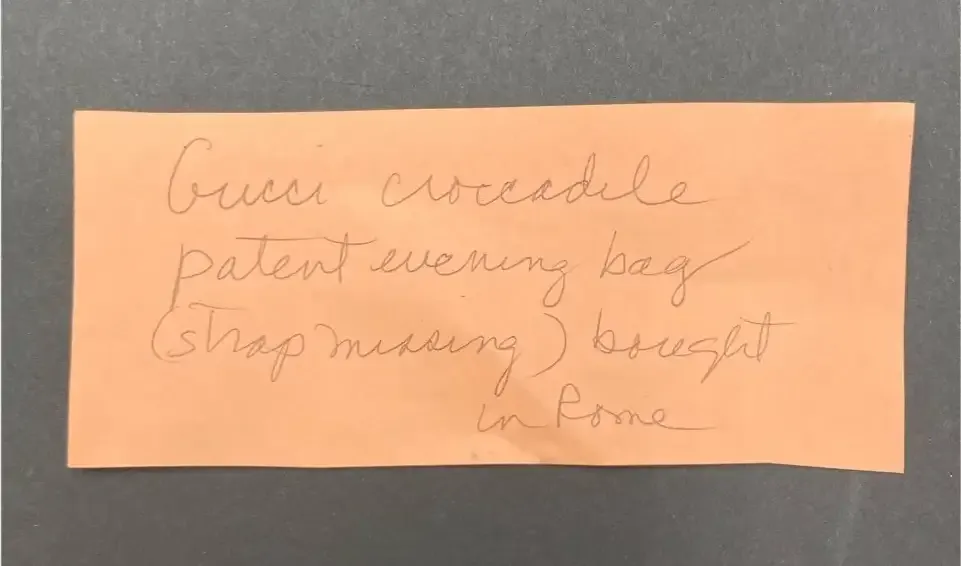 Gucci croccadile
patent evening bag
(strap missing) bought
in Rome